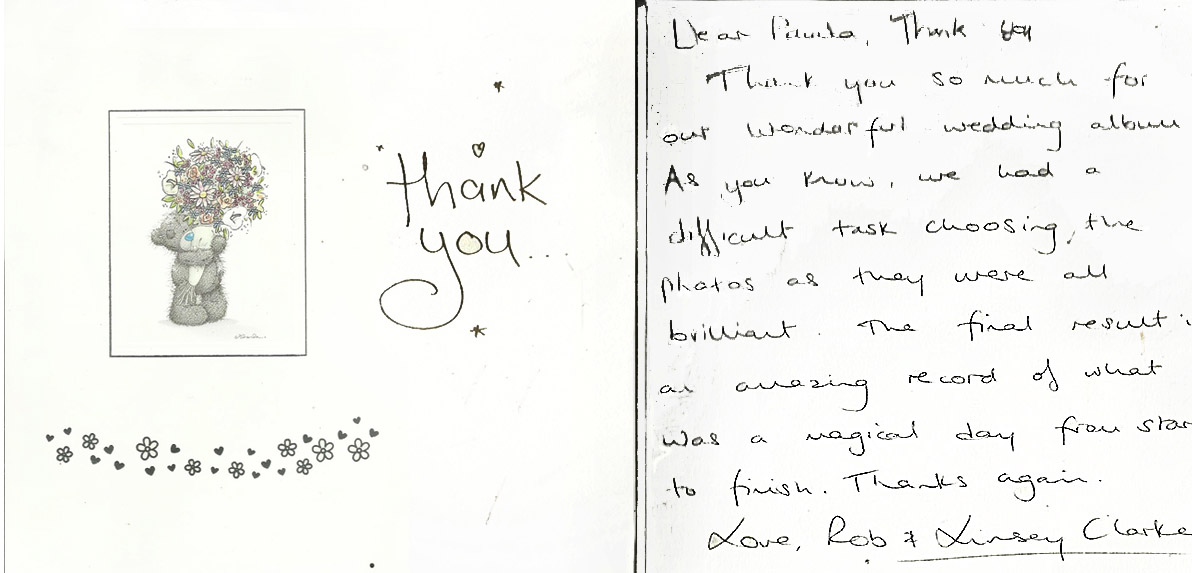 thank
you...
Dear Pamela, Thank you
Thank you so much for
our wonderful wedding album
As you know, we had a
difficult task choosing, the
photos as they were all
brilliant. The final result i
an amazing record of what
was a magical day from star
to finish. Thanks again.
Love, Rob & Linsey Clarke